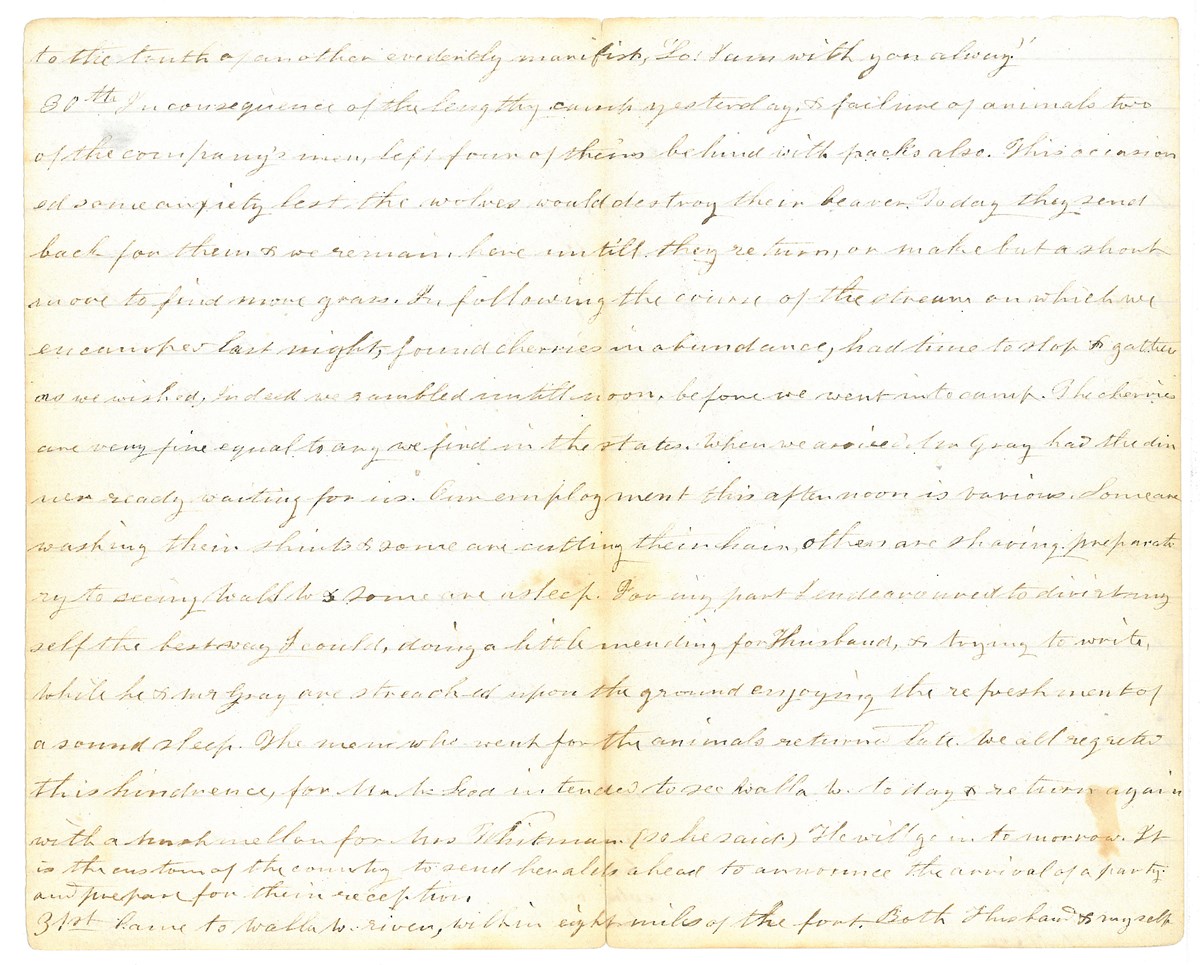 to the truth of another evedently manifist, "Lo! I am with you alway"
30th In consequence of the lengthy camp yesterday, & failure of animals two
of the company's men, left four of theirs behind with packs also. This occasion
ed some anxiety lest the wolves would destroy their beaver. Today they send
back for them & we remain here untill they return, or make but a short
move to find more grass. In following the course of the stream on which we
encamped last night, found cherries in abundance, had time to stop & gather
as we wished, Indeed we rambled untill noon, before we went into camp. The cherries
are very fine equal to any we find in the states. When we arrived Mr Gray had the din
ner ready waiting for us. Our employment this afternoon is various. Some are
washing their shirts & some are cutting their hair, others are shaving preparato
ry to seeing Walla W & some are asleep. For my part I endeavoured to divert my
self the best way I could, doing a little mending for Husband, & trying to write,
while he & Mr Gray are streached upon the ground enjoying the refreshment of
a sound sleep. The men who went for the animals returned late. We all regreted
this hindrence, for Mr McLeod intended to see Walla W. to day & return again
with a muskmellon for Mrs Whitman (so he said) He will go in to morrow. It
is the custom of the country to send heralds ahead to announce the arrival of a party
and prepare for their reception.
31st Came to Walla W. river, within eight miles of the fort. Both Husband & myself